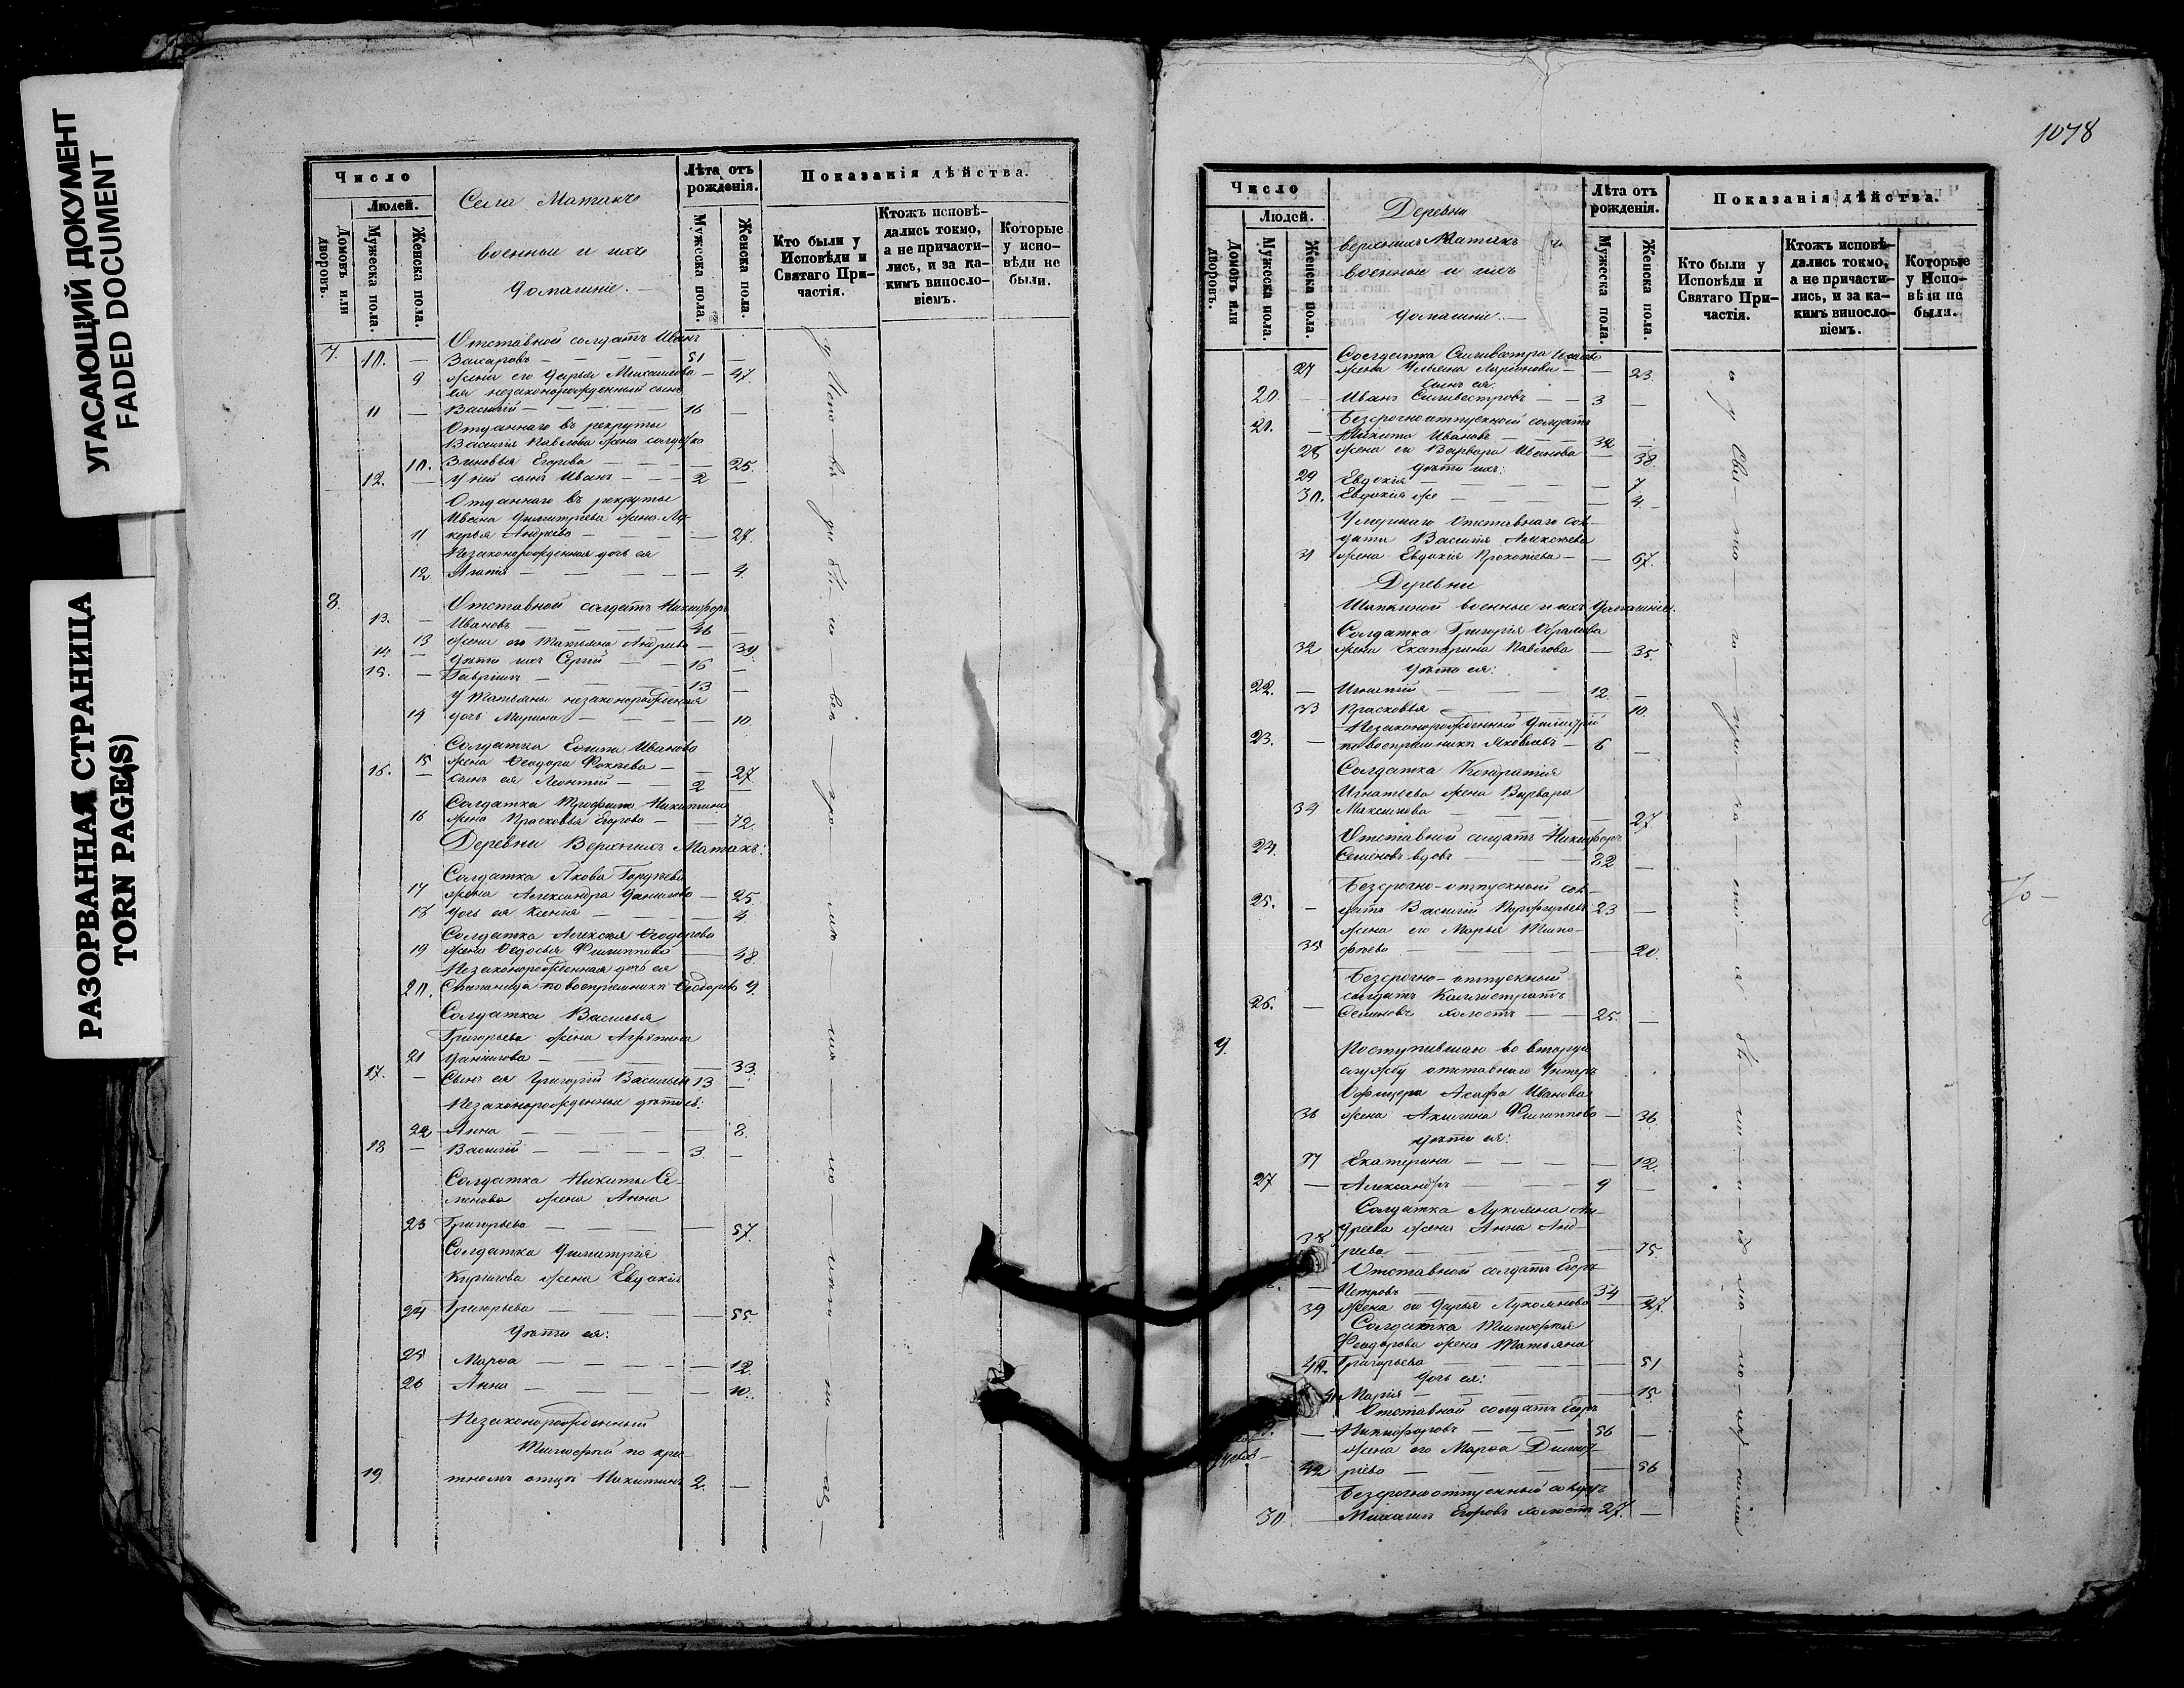 УГАСАЮЩИЙ ДОКУМЕНТ
FADED DOCUMENT
РАЗОРВАННАЯ СТРАНИЦА
TORN PAGE(S)
Число
Людей.
Домовъ или дворовъ.
Мужеска пола.
Женска пола.
Села Матакъ
военные и ихъ
домашніе.
Лѣта отъ рожденія.
Мужеска пола.
Женска пола.
Показанія дѣйства.
Кто были у Исповѣди и Святаго Причастія.
Ктожъ исповѣдались токмо, а не причастились, и за какимъ винословіемъ.
Которые у исповѣди не были.
Отставной солдатъ Иванъ
7. 10. — Захаровъ — 51 —
9 жена его Дарья Михайлова — 47.
ея незаконорожденный сынъ
11 — Василій — 16 —
Отданнаго въ рекруты
Василія Павлова жена солдатка
10. Зиновья Егорова — 25.
12. — У ней сынъ Иванъ — 2 —
Отданнаго въ рекруты
Ивана Димитріева жена Лу-
11 керья Андреева — 27.
Незаконорожденная дочь ея
12 Агапія — 4.
8. Отставной солдатъ Никифоръ
13. — Ивановъ — 46 —
13 жена его Татьяна Андреева — 39.
14 — Дѣти ихъ Сергій — 16 —
15. — Гавріилъ — 13 —
У Татьяны незаконорожденная
14 дочь Марина — 10.
Солдатка Ивана
15 жена Ѳеодора Фокеева — 27
16. — Сынъ ея Леонтій — 2 —
Солдатка Трофима Никитина
16 жена Прасковья Егорова — 72.
Деревни Верхнихъ Матакъ:
Солдатка Якова Гордѣева
17 жена Александра Данилова — 25.
18 дочь ея Ксенія — 4.
Солдатка Алексѣя Ѳеодорова
19 жена Ѳедосья Филиппова — 48.
Незаконорожденная дочь ея
20. Степанида по воспріемникѣ Ѳеодорова 9.
Солдатка Василья
Григорьева жена Агрипина
21 Данилова — 33.
17. — Сынъ ея Григорій Васильевъ 13 —
Незаконорожденные дѣти ея:
22 Анна — 8.
18 — Василій — 3 —
Солдатка Никиты Се-
менова жена Анна
23 Григорьева — 57.
Солдатка Димитрія
Кирилова жена Евдокія
24 Григорьева — 55.
Дѣти ея:
25 Марѳа — 12.
26 Анна — 10.
Незаконорожденный
Тимоѳей по кре-
19 стномъ отцѣ Никитинъ 2. —
1078
Число
Людей.
Домовъ или дворовъ.
Мужеска пола.
Женска пола.
Деревни
верхнихъ Матакъ
военные и ихъ
домашніе.
Лѣта отъ рожденія.
Мужеска пола.
Женска пола.
Показанія дѣйства.
Кто были у Исповѣди и Святаго Причастія.
Ктожъ исповѣдались токмо, а не причастились, и за какимъ винословіемъ.
Которые у Исповѣди не были.
Солдатка Силивестра
27 жена Ульяна Ларіонова — 23.
Сынъ ея:
20. — Иванъ Силивестровъ — 3 —
Безсрочноотпускной солдатъ
21. — Никита Ивановъ — 32 —
28 жена его Варвара Иванова — 38.
Дѣти ихъ:
29 Евдокія — 7
30. Евдокія же — 4.
Умершаго Отставнаго сол-
дата Василія Алексѣева
31 жена Евдокія Прокопіева — 67.
Деревни
Шапкиной военные и ихъ домашніе.
Солдатка Григорія Абрамова
32 жена Екатерина Павлова — 35.
Дѣти ея:
22. — Игнатій — 12. —
33 Прасковья — 10.
Незаконорожденный Димитрій
23. — по воспріемникѣ Яковлевъ — 6 —
Солдатка Кондратія
Игнатьева жена Варвара
34 Максимова — 27.
Отставной солдатъ Никифоръ
24. Семеновъ вдовъ — 82 —
Безсрочно-отпускный сол-
25. — датъ Василій Порфирьевъ 23 —
жена его Марья Тимо-
35 ѳеева — 20.
Безсрочно-отпускный
солдатъ Каллистратъ
26. — Семеновъ холостъ — 25. —
9. Поступившаго во вторую
службу отставнаго Унтеръ
Офицера Акафа Иванова
36 жена Акилина Филиппова — 36.
Дѣти ея:
37 Екатерина — 12.
27 — Александръ — 9 —
Солдатка Лукьяна Ан-
дреева жена Анна Анд-
38 реева — 75.
Отставной солдатъ Егоръ
— Петровъ — 34
39 жена его Дарья Лукьянова — 27.
Солдатка Тимоѳея
Ѳеодорова жена Татьяна
40. Григорьева — 51
Дочь ея:
41 Марія — 15.
Отставной солдатъ Егоръ
— Никифоровъ — 56 —
жена его Марѳа Димит-
42 ріева — 56
Безсрочноотпускный солдатъ
30 — Михаилъ Егоровъ холостъ 27. —